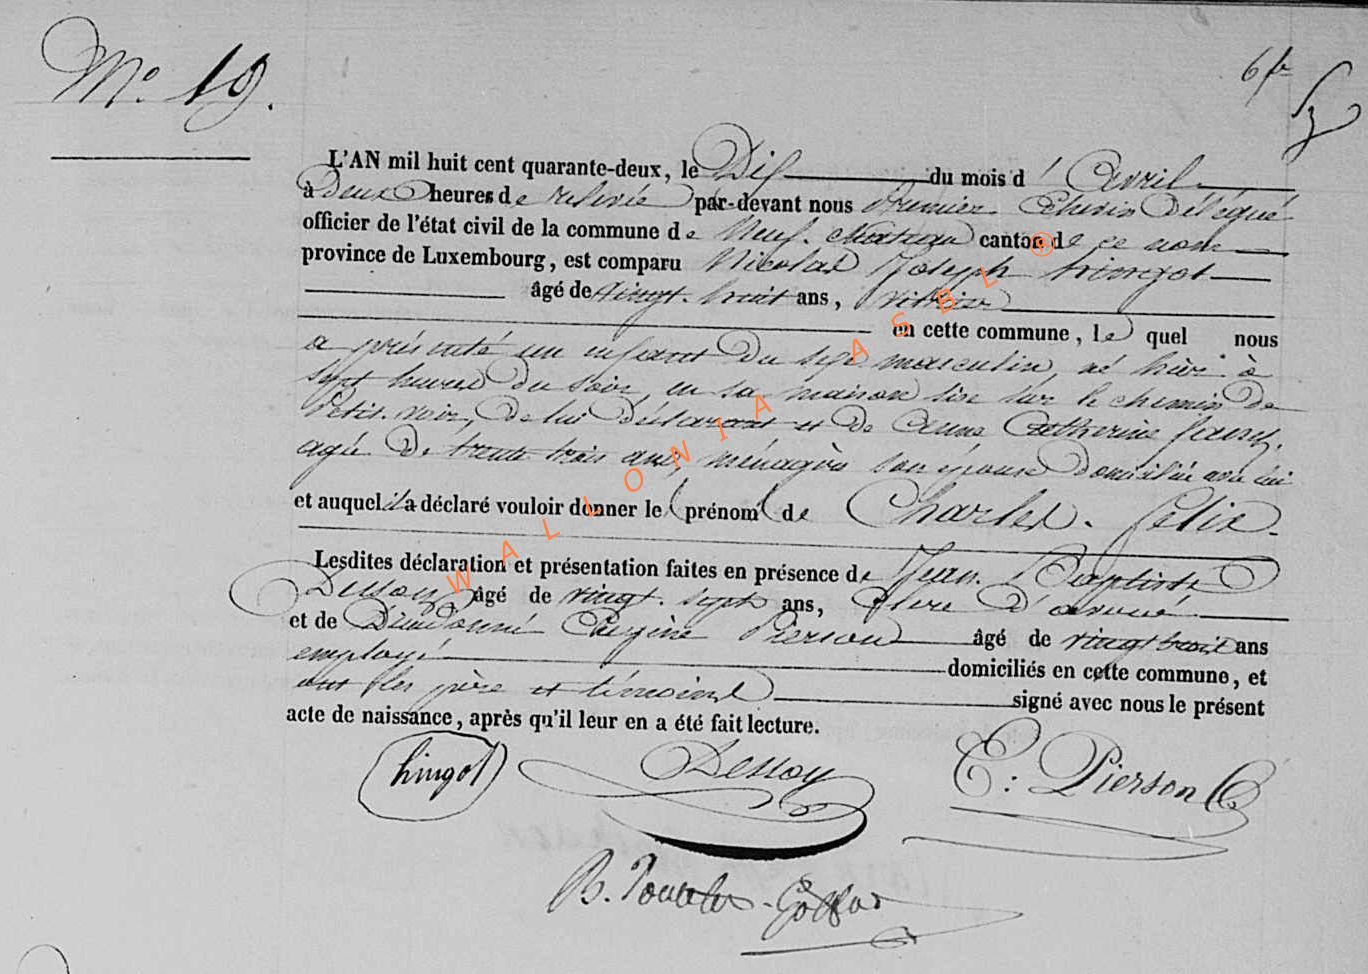 N.° 19.
6 f
L'AN mil huit cent quarante-deux, le Dix du mois d' Avril
à Deux heures de relevée par-devant nous Premier Echevin Délégué
officier de l'état civil de la commune de Neuf-Chateau canton de ce nom
province de Luxembourg, est comparu Nicolas Joseph
âgé de vingt-huit ans, vitrier
en cette commune, lequel nous
a présenté un enfant du sexe masculin, né hier à
sept heures du soir, en sa maison sise sur le chemin de
Petit-voir, de lui déclarant et de Anne Catherine
agée de trente trois ans, ménagère son épouse domiciliée avec lui
et auquel il a déclaré vouloir donner le prénom de Charles. Félix.
Lesdites déclaration et présentation faites en présence de Jean Baptiste
Dessoy âgé de vingt-sept ans, Clerc d'avoué
et de Dieudonné Eugène Pierson âgé de vingt huit ans
employé domiciliés en cette commune, et
ont les père et témoins signé avec nous le présent
acte de naissance, après qu'il leur en a été fait lecture.
hingot Dessoy E: Pierson
B.
WALLONIA ASBL ®